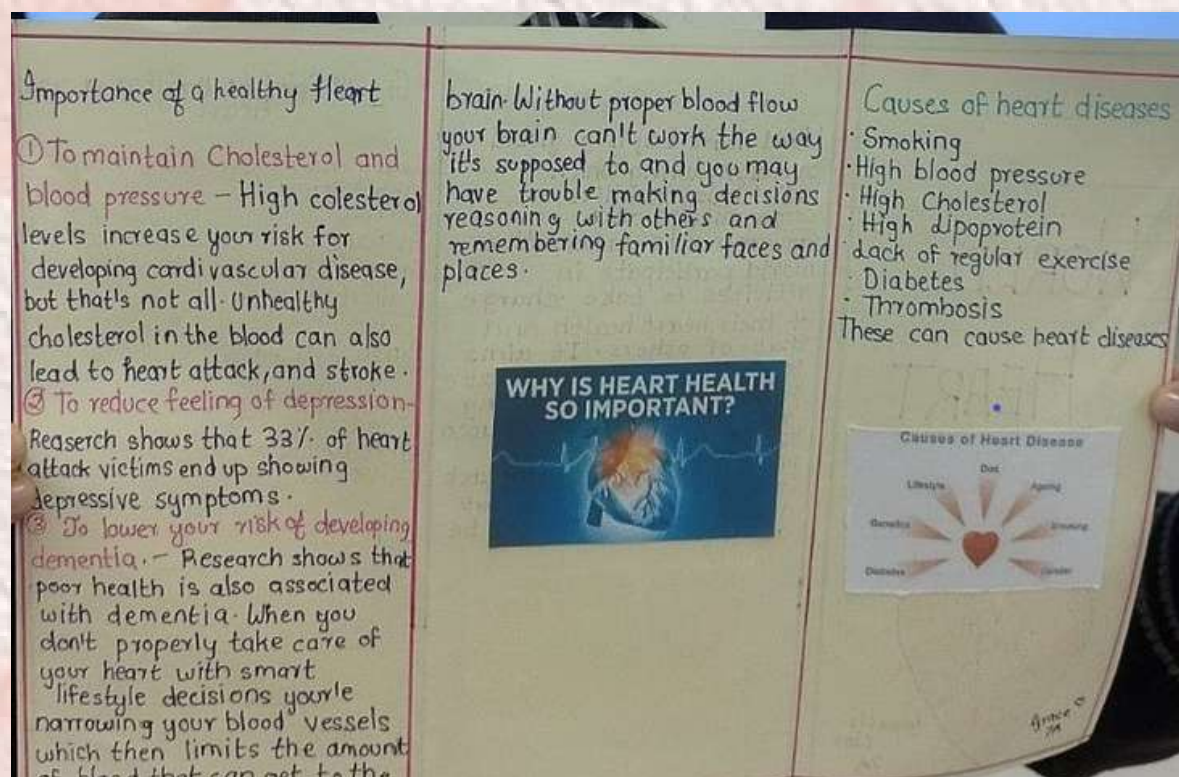 Importance of a healthy Heart
① To maintain Cholesterol and
blood pressure – High colesterol
levels increase your risk for
developing cardivascular disease,
but that's not all. Unhealthy
cholesterol in the blood can also
lead to heart attack, and stroke.
② To reduce feeling of depression-
Reaserch shows that 33% of heart
attack victims end up showing
depressive symptoms.
③ To lower your risk of developing
dementia. – Research shows that
poor health is also associated
with dementia. When you
don't properly take care of
your heart with smart
lifestyle decisions your'le
narrowing your blood vessels
which then limits the amount
of blood that can get to the
brain. Without proper blood flow
your brain can't work the way
it's supposed to and you may
have trouble making decisions
reasoning with others and
remembering familiar faces and
places.
WHY IS HEART HEALTH
SO IMPORTANT?
Causes of heart diseases
· Smoking
· High blood pressure
· High Cholesterol
· High Lipoprotein
· Lack of regular exercise
Diabetes
· Thrombosis
These can cause heart diseases
Causes of Heart Disease
Diet
Lifestyle
Ageing
Genetics
Smoking
Diabetes
Gender
Grace